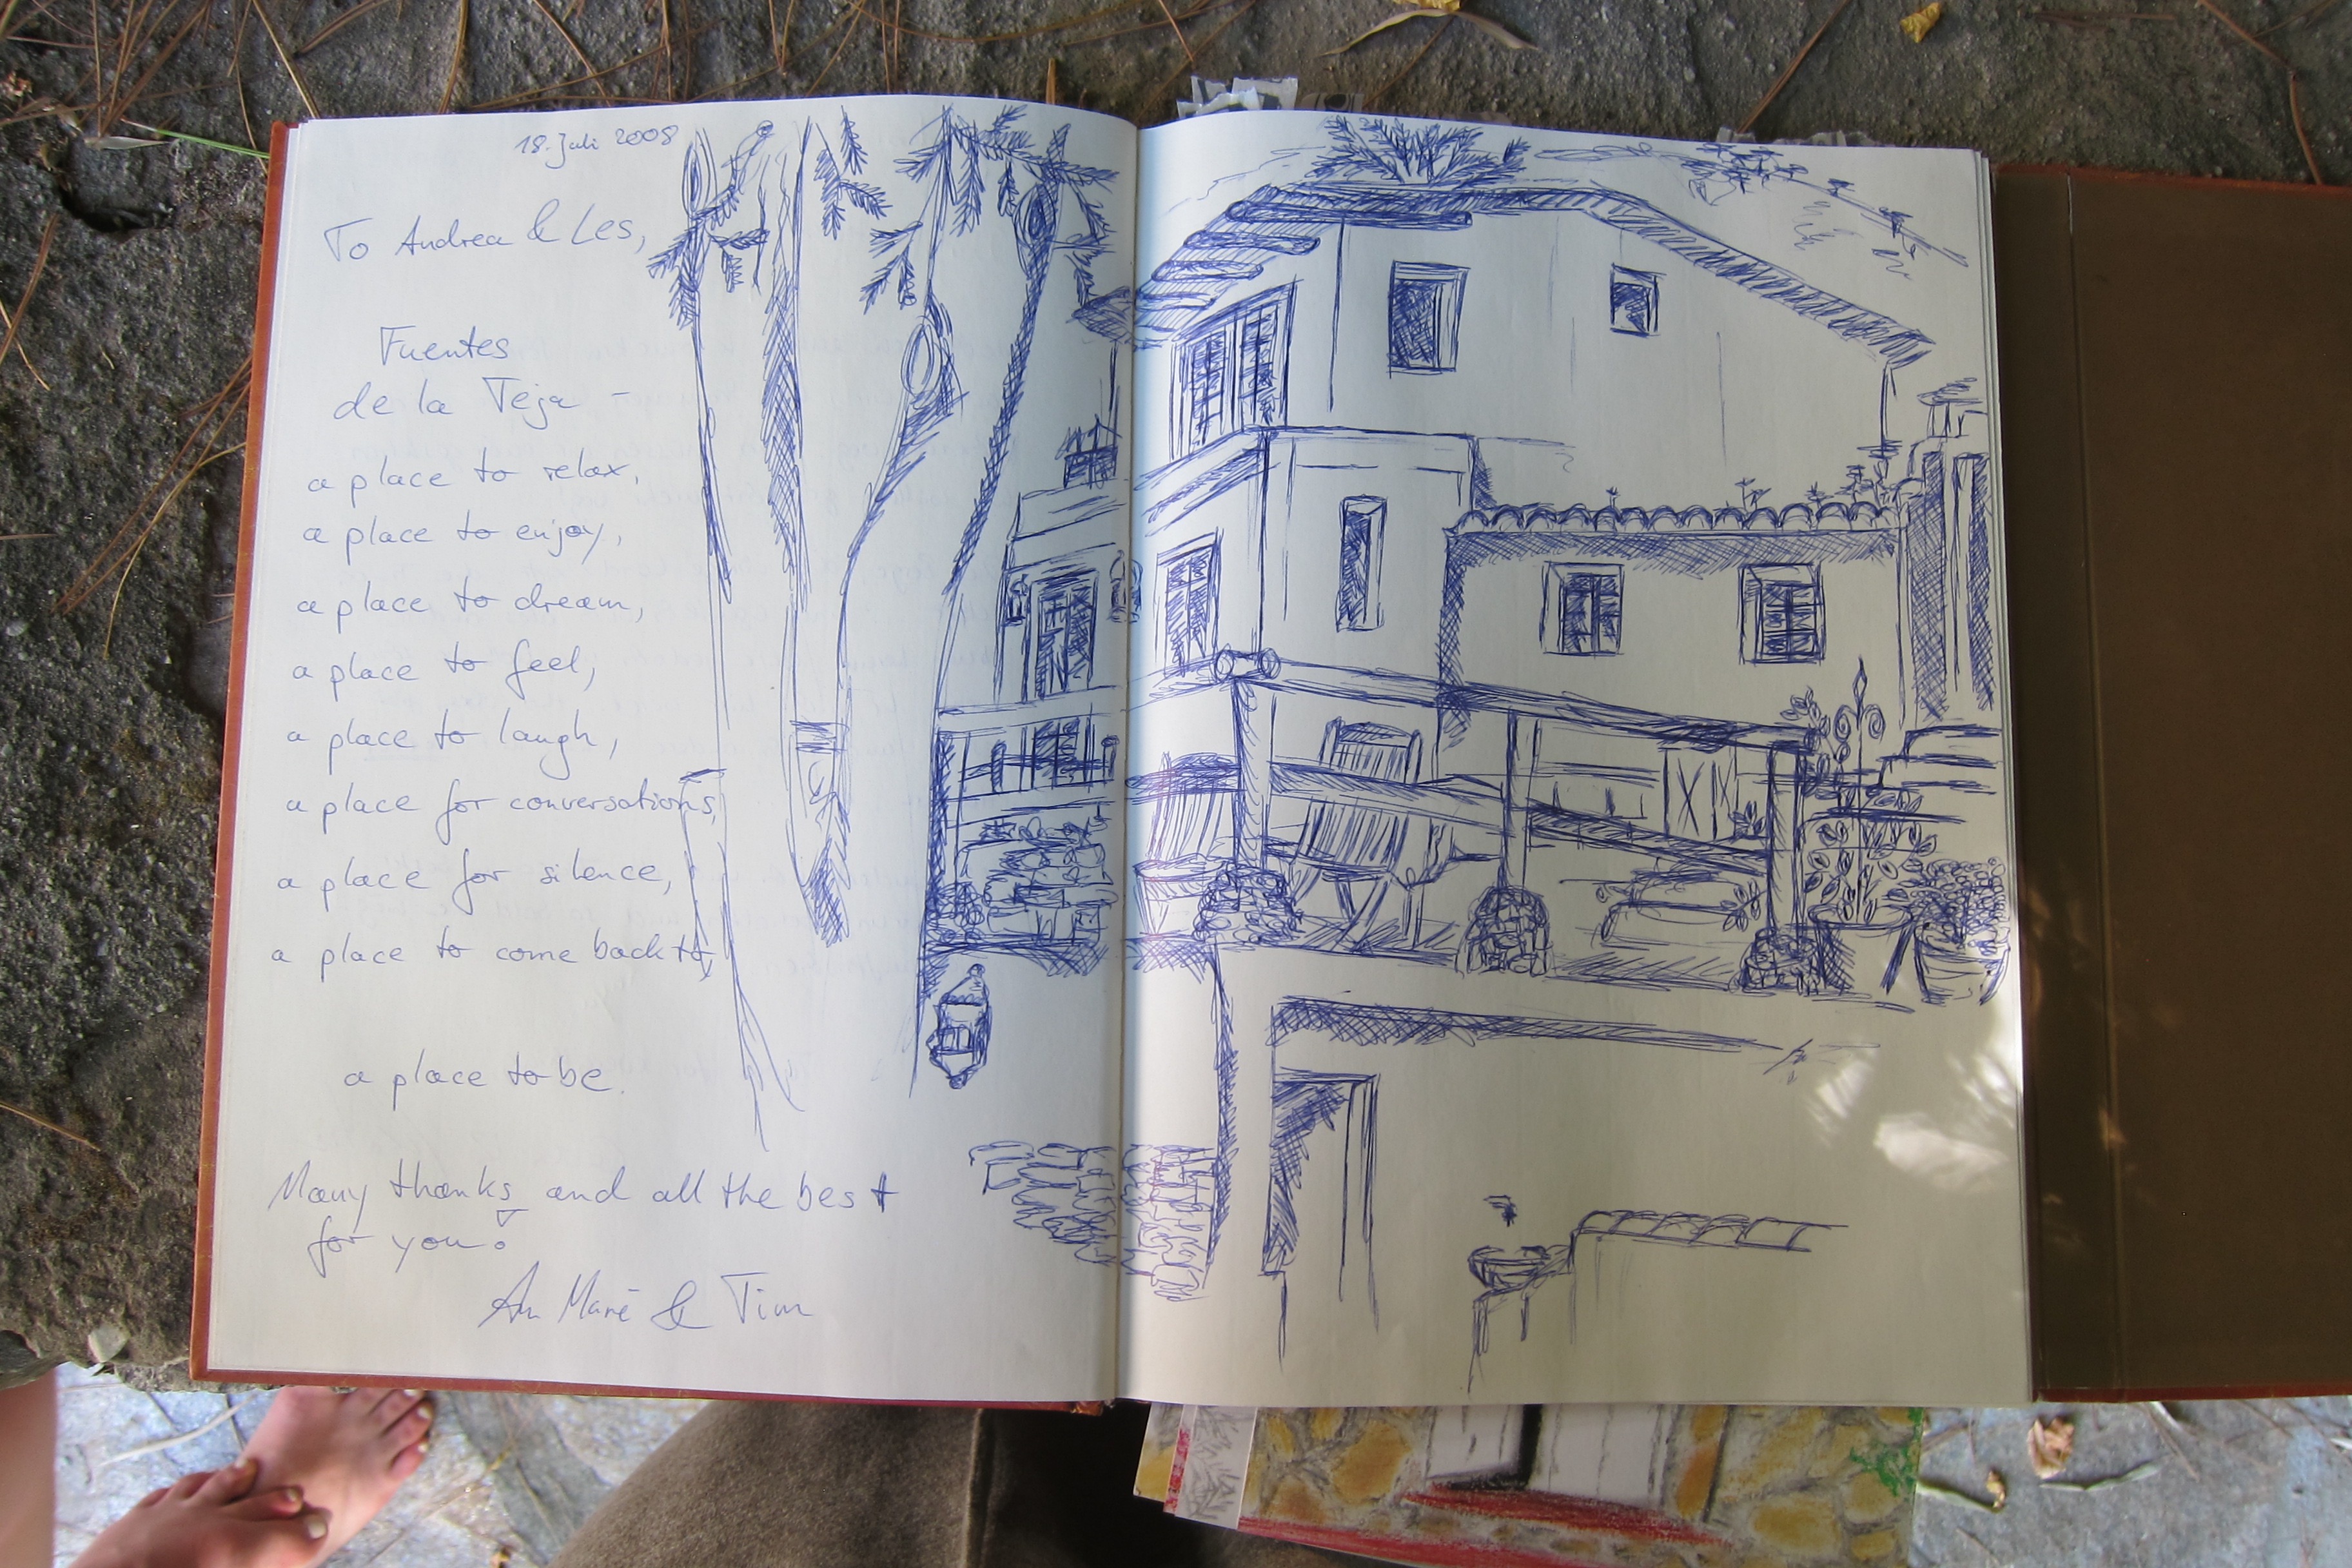 18. Juli 2008
To Andrea & Les,
Fuentes
de la Teja -
a place to relax,
a place to enjoy,
a place to dream,
a place to feel,
a place to laugh,
a place for conversations,
a place for silence,
a place to come back to,
a place to be.
Many thanks and all the best
for you!
& Tim